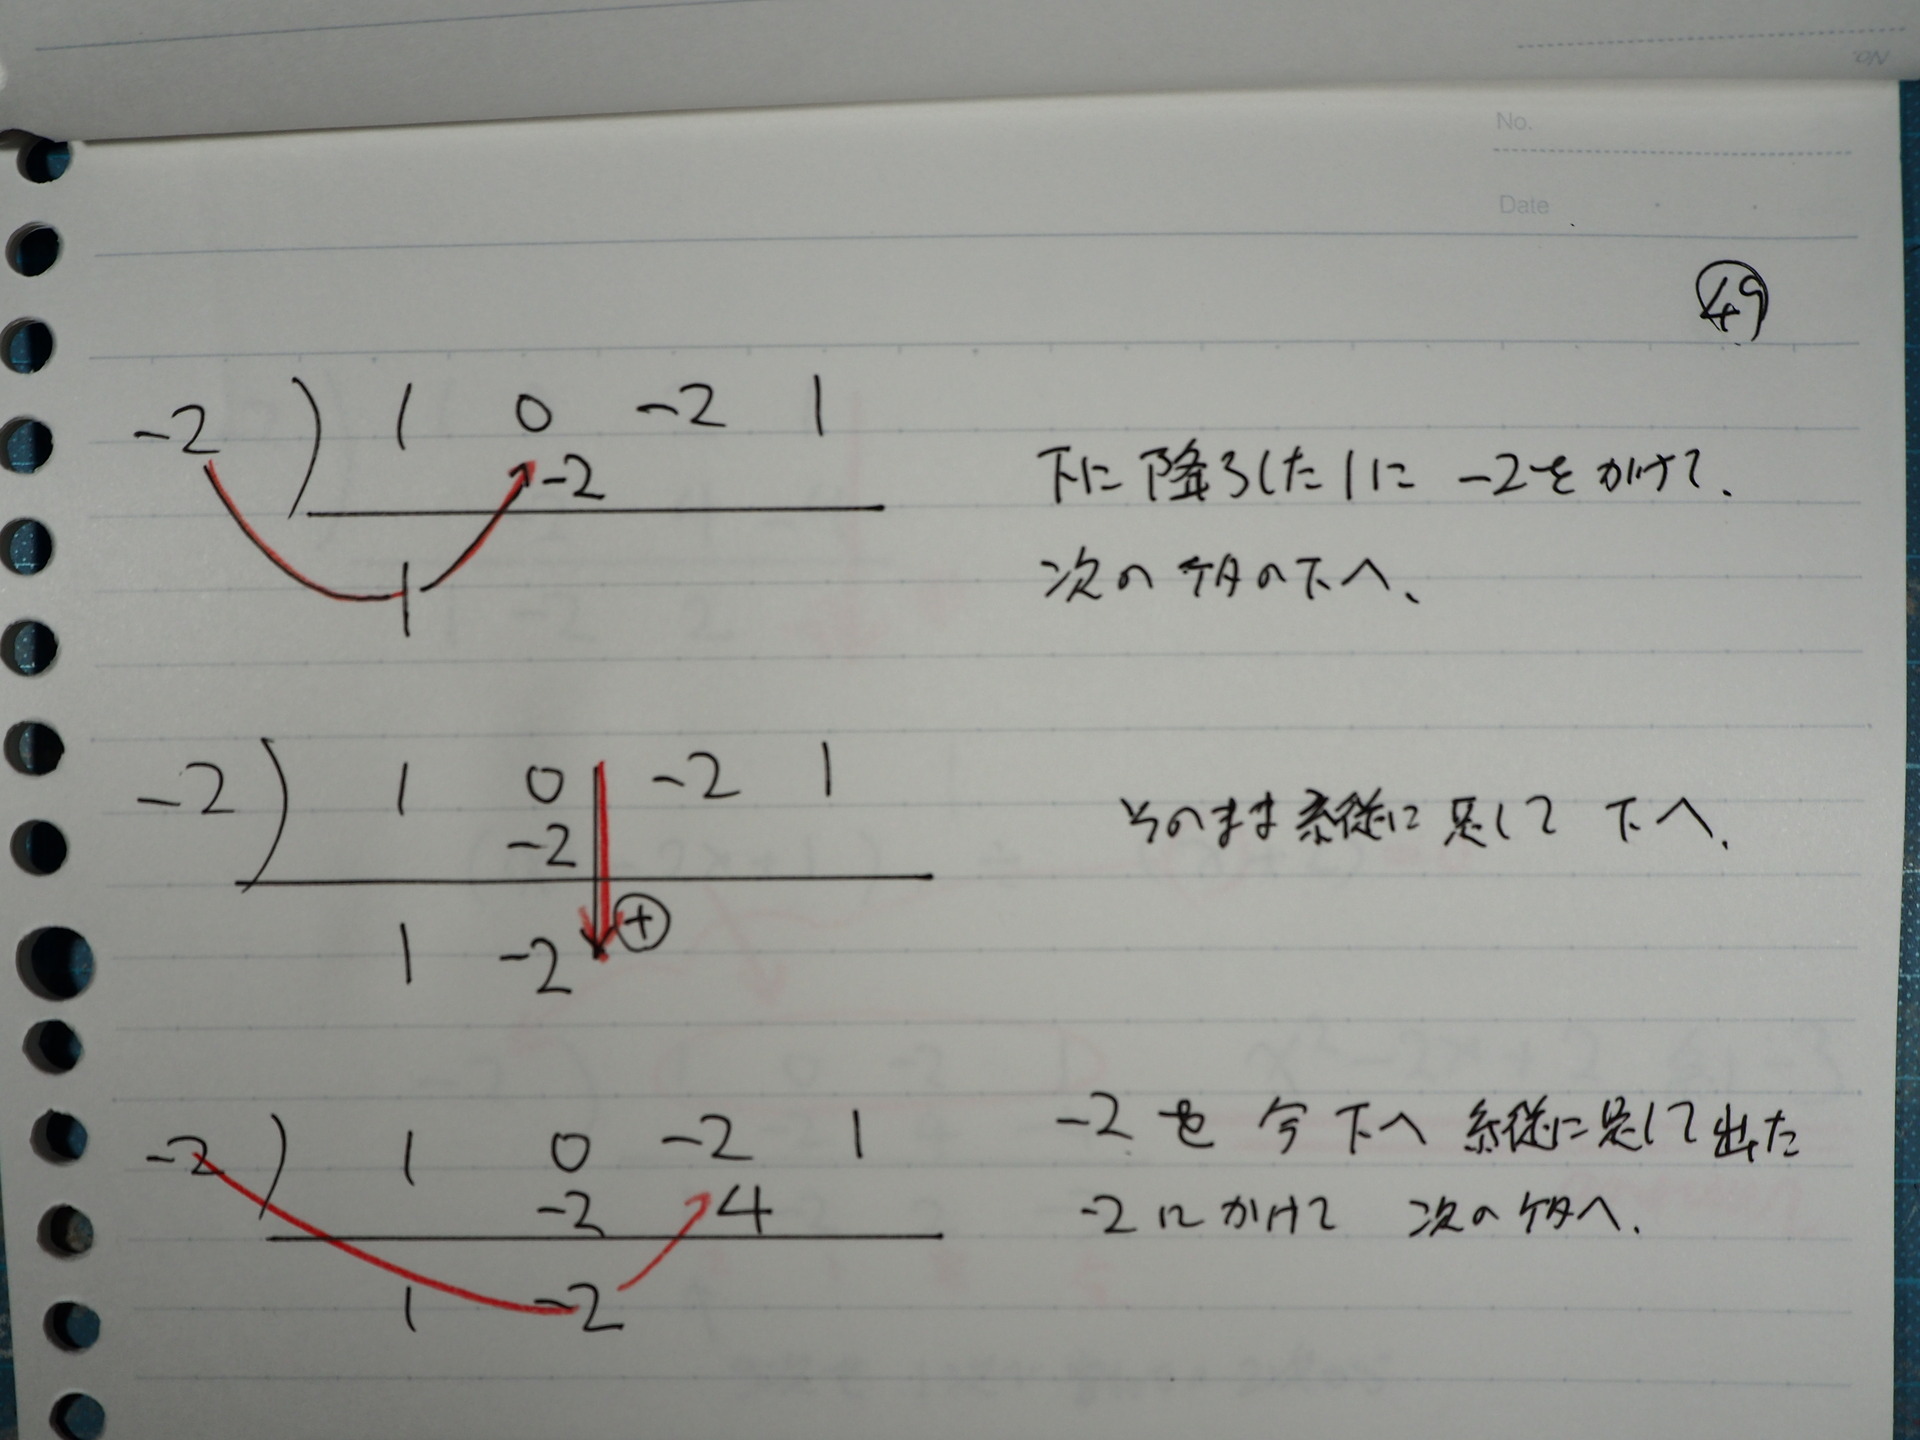 No.
No.
Date
㊾
-2 ) 1 0 -2 1
-2
1
下に降ろした1に -2をかけて、
次のケタの下へ、
-2 ) 1 0 -2 1
-2
1 -2 ⊕
そのまま縦に足して 下へ、
-2 ) 1 0 -2 1
-2 4
1 -2
-2を 今下へ 縦に足して出た
-2にかけて 次のケタへ、